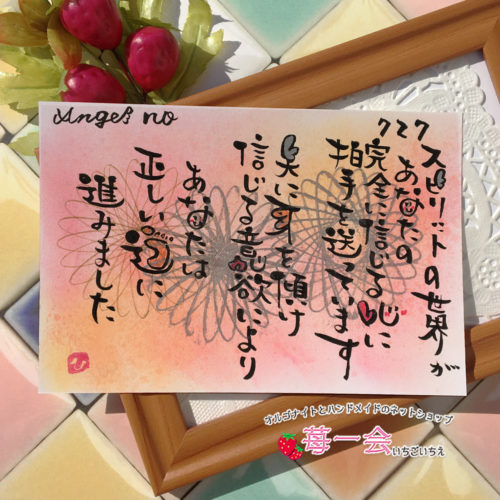 Angel no
727
スピリットの世界が
あなたの
完全に信じる心に
拍手を送っています
に耳を傾け
信じる意欲により
あなたは
正しい道に
進みました
オルゴナイトとハンドメイドのネットショップ
苺一会 いちごいちえ